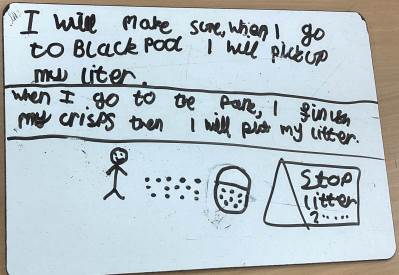 I will make sure, when I go
to Black Pool I will pick up
my liter.
when I go to the park, I finish
my crisps then I will put my litter.
Stop
litter
?.....